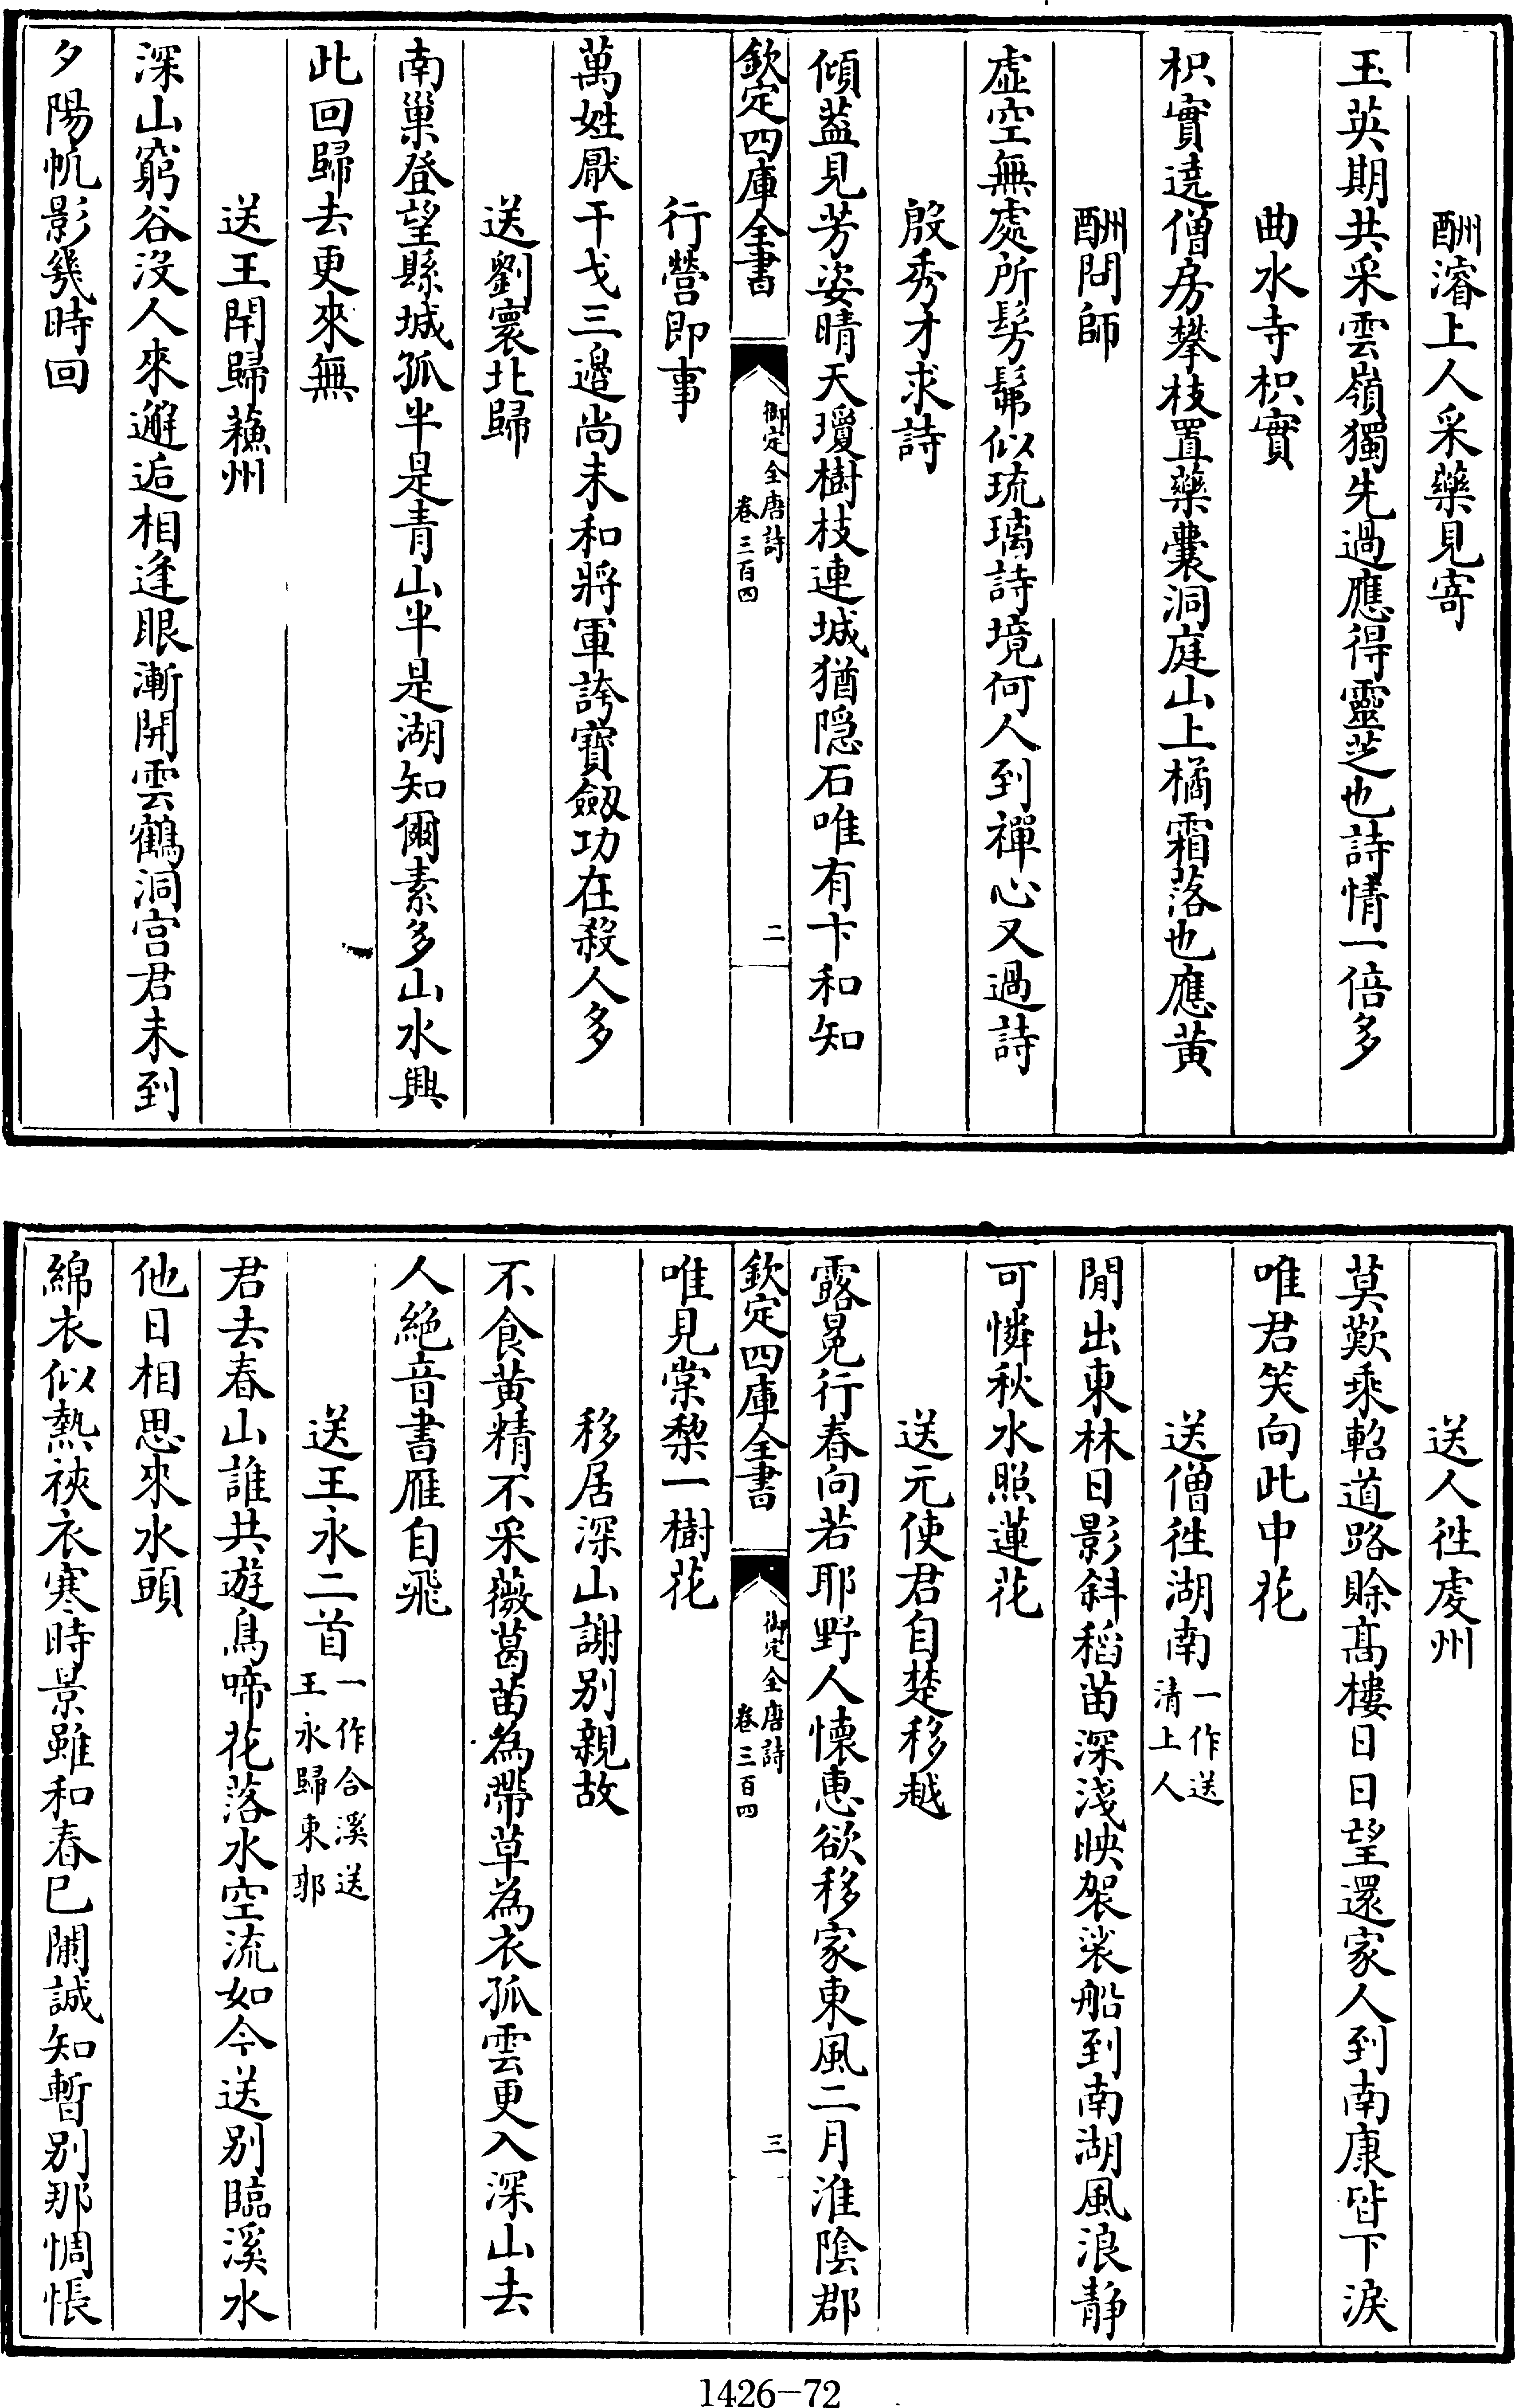 酬濬上人采藥見寄
玉英期共采雲嶺獨先過應得靈芝也詩情一倍多
曲水寺枳實
枳實遶僧房攀枝置藥囊洞庭山上橘霜落也應黄
酬問師
虚空無處所髣髴似琉璃詩境何人到禪心又過詩
殷秀才求詩
傾葢見芳姿晴天瓊樹枝連城猶隠石唯有卞和知
欽定四庫全書
御定全唐詩
卷三百四
二
行營即事
萬姓厭干戈三邉尚未和將軍誇寶劔功在殺人多
送劉寰北歸
南巢登望縣城孤半是青山半是湖知爾素多山水興
此回歸去更來無
送王閈歸蘓州
深山窮谷没人來邂逅相逢眼漸開雲鶴洞宫君未到
夕陽帆影幾時回
送人徃䖍州
莫歎乘軺道路賒髙樓日日望還家人到南康皆下淚
唯君笑向此中花
送僧徃湖南
一作送
清上人
閒出東林日影斜稻苗深淺映袈裟船到南湖風浪静
可憐秋水照蓮花
送元使君自楚移越
露冕行春向若耶野人懐惠欲移家東風二月淮隂郡
欽定四庫全書
御定全唐詩
卷三百四
三
唯見棠梨一樹花
移居深山謝别親故
不食黄精不采薇葛苗為帶草為衣孤雲更入深山去
人絶音書雁自飛
送王永二首
一作合溪送
王永歸東郭
君去春山誰共遊鳥啼花落水空流如今送别臨溪水
他日相思來水頭
綿衣似熱裌衣寒時景雖和春已闌誠知暫别那惆悵
1426-72